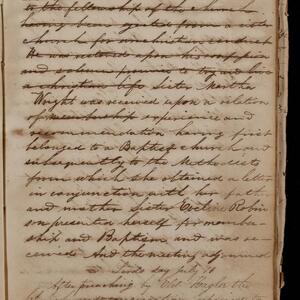 to the fellowship of the church
having been ejected from a sister
church for unchristian conduct
He was restored upon his
and solemn promise to try and live
a christian life Sister Martha
Wright was received upon a relation
of membership experience and
recommendation having first
belonged to a Baptist church and
subsequently to the Methodists
from which she obtained a letter
in conjunction with her father
and mother Sister Evaline Robin
son presented herself for member
ship and Baptism and was re
ceived And the meeting adjourned
Lords day July
After preaching by Eld the